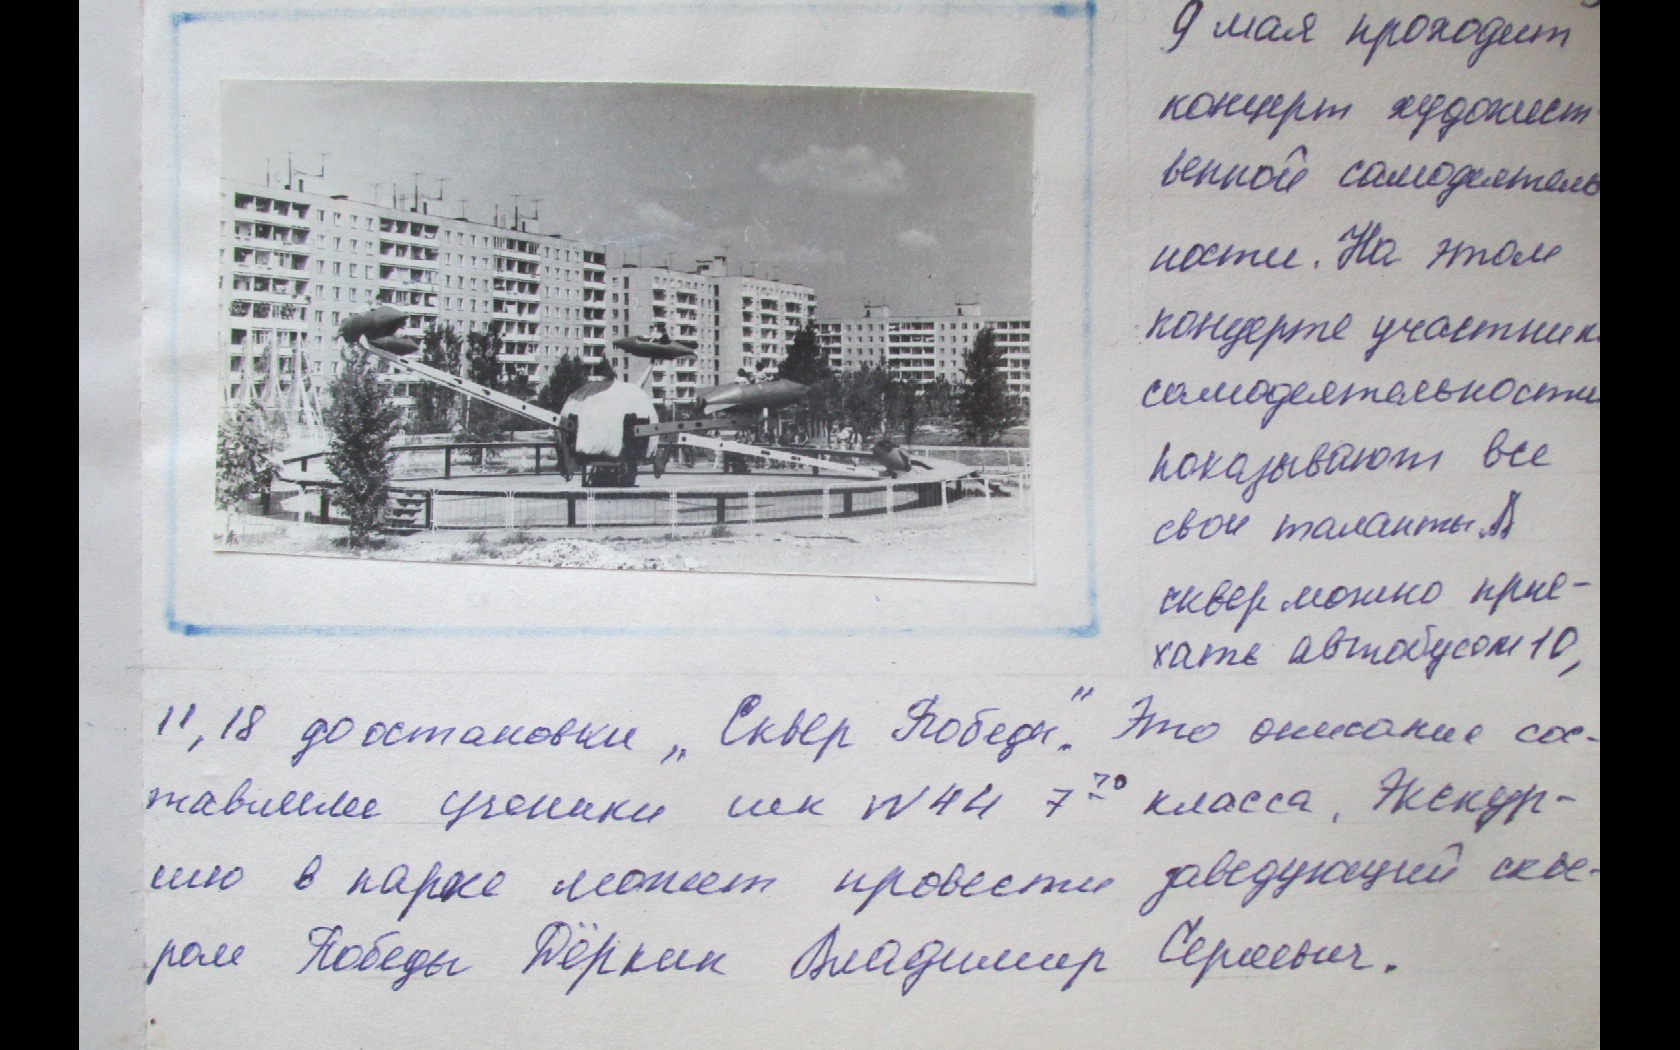 9 мая проходит
концерт художест
венной самодеятель
ности. На этом
концерте участник
самодеятельности
показывают все
свои таланты. В
сквер можно прие-
хать автобусом 10,
11, 18 до остановки „Сквер Победы". Это описание сос-
тавили ученики шк №44 7 го класса. Экскур-
сию в парке может провести заведующий скве-
ром Победы Дёркин Владимир Сергеевич.